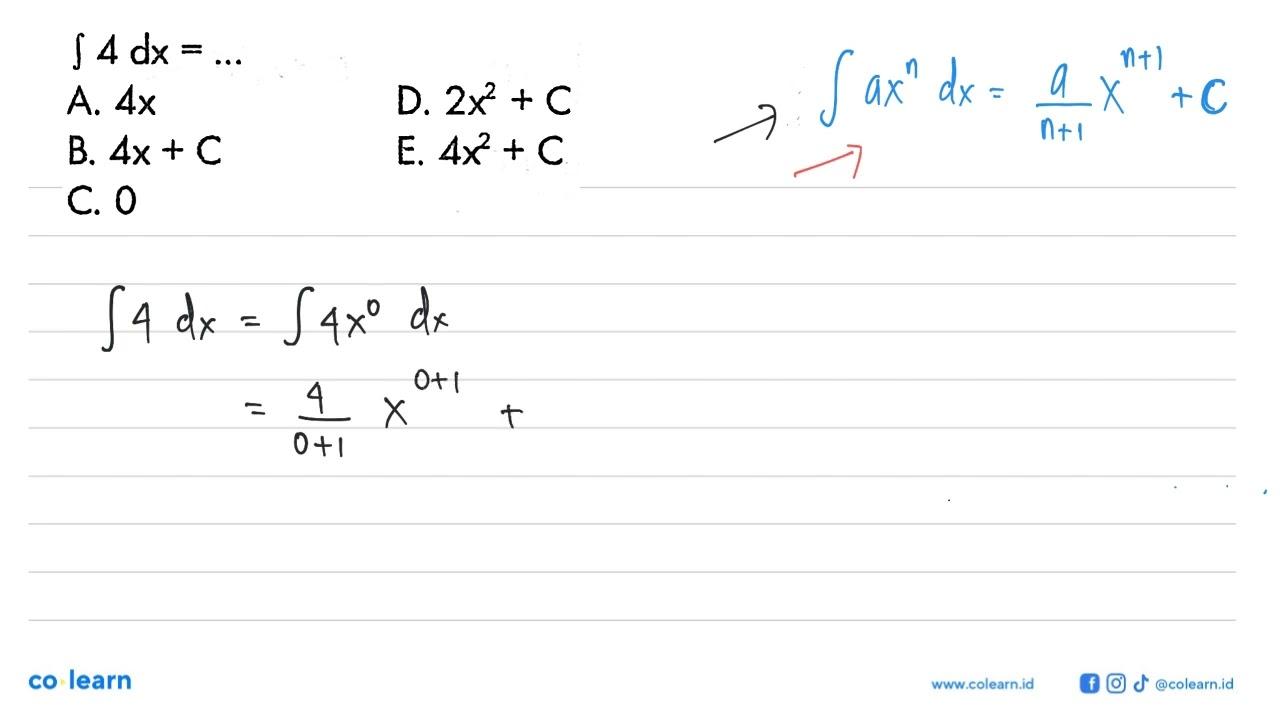 ∫ 4 dx = ...
A. 4x
B. 4x + C
C. 0
D. 2x² + C
E. 4x² + C
∫ axⁿ dx = a/(n+1) x^(n+1) + C
∫ 4 dx = ∫ 4x⁰ dx
= 4/(0+1) x^(0+1) +
co·learn
www.colearn.id
@colearn.id